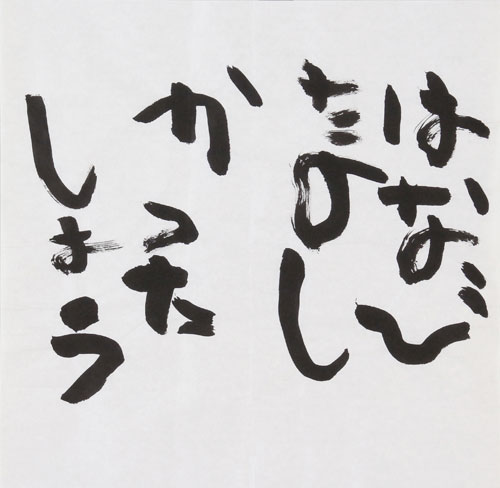 はなび
たのし
かった
しょう